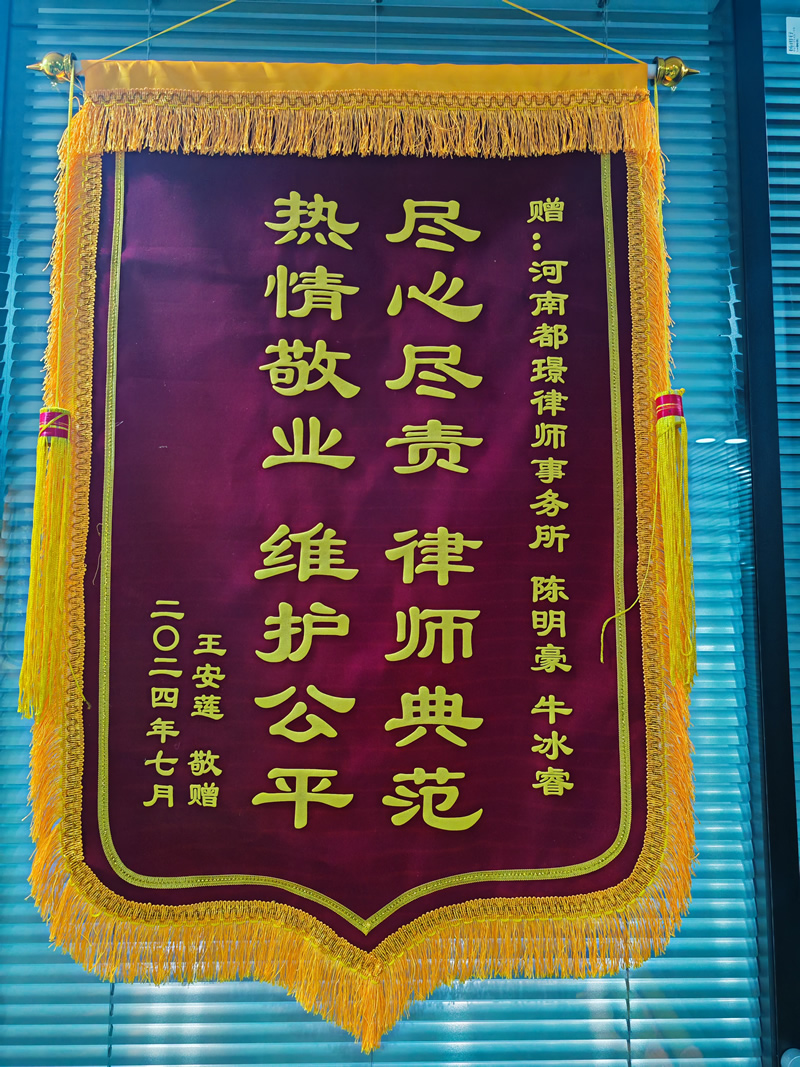 赠：河南都璟律师事务所 陈明豪 牛冰睿
尽心尽责 律师典范
热情敬业 维护公平
王安莲 敬赠
二〇二四年七月